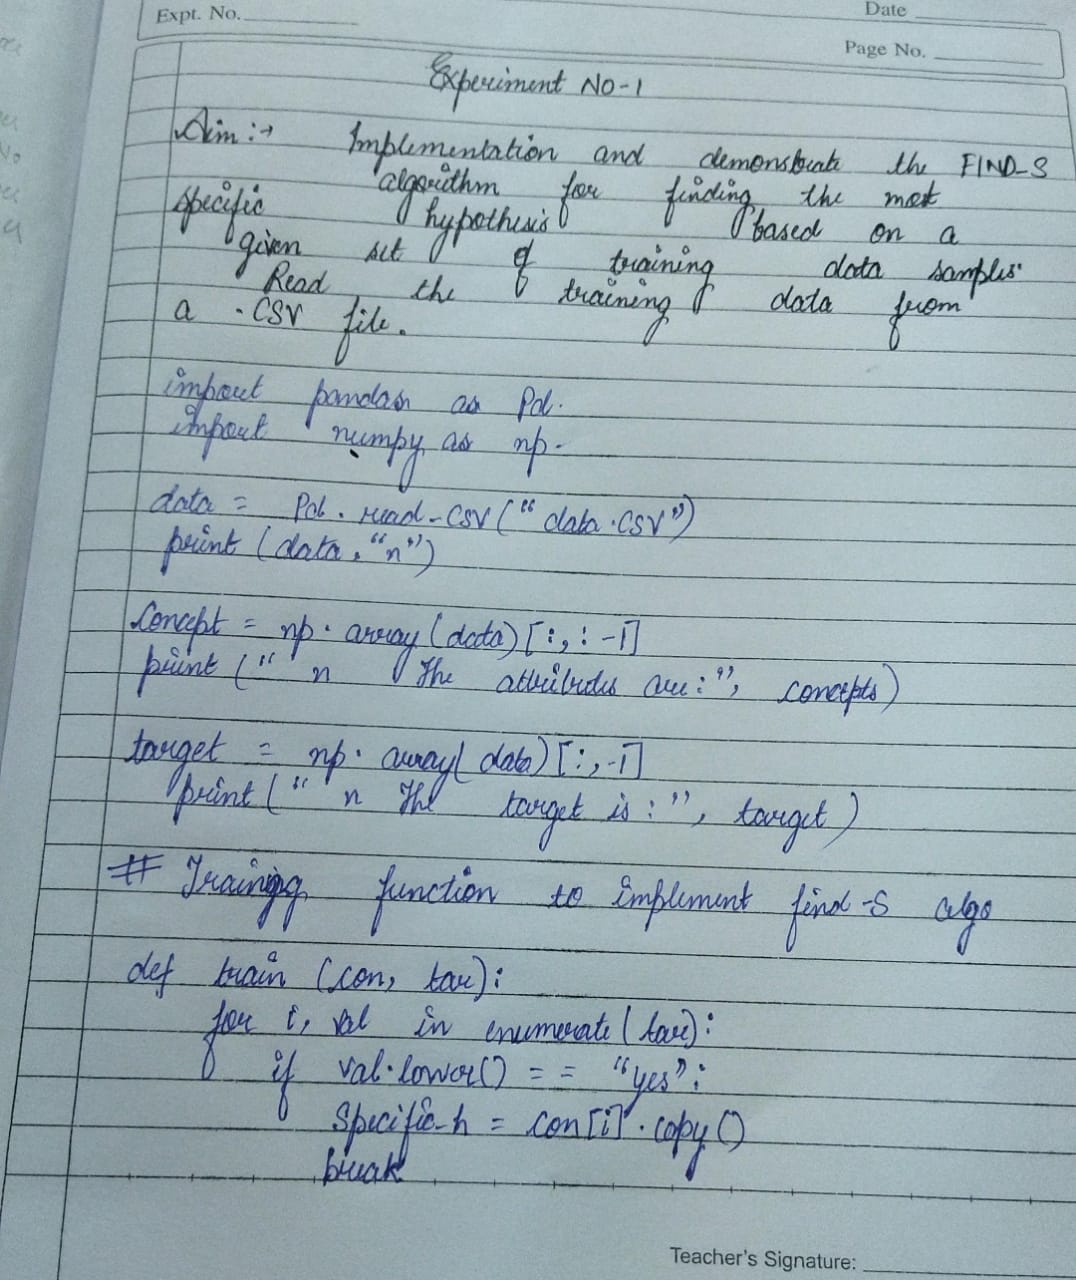 Expt. No.
Date
Page No.
Experiment No-1
Aim :→ Implementation and demonstrate the FIND-S
algorithm for finding the most
specific hypothesis based on a
given set of training data samples.
Read the training data from
a .CSV file.
import pandas as Pd.
import numpy as np.
data = Pd.read-CSV("data.CSV")
print (data, "n")
Concept = np.array(data)[:,:-1]
print (" n The attributes are:", concepts)
target = np.array(data)[:,-1]
print (" n The target is :", target)
# Training function to implement find-S algo
def train (con, tar):
for i, val in enumerate(tar):
if val.lower() == "yes":
Specific-h = con[i].copy()
break
Teacher's Signature: